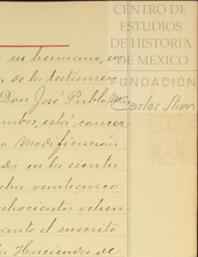 CENTRO DE
ESTUDIOS
DE HISTORIA
DE MEXICO
FUNDACIÓN
Carlos Slim
su humano, en
a de la testamen
Don José Pablo
ambos, está concer
Modificación
da en la escritu
cha veinticinco
ochocientos ochen
ante el suscrito
la Hacienda de